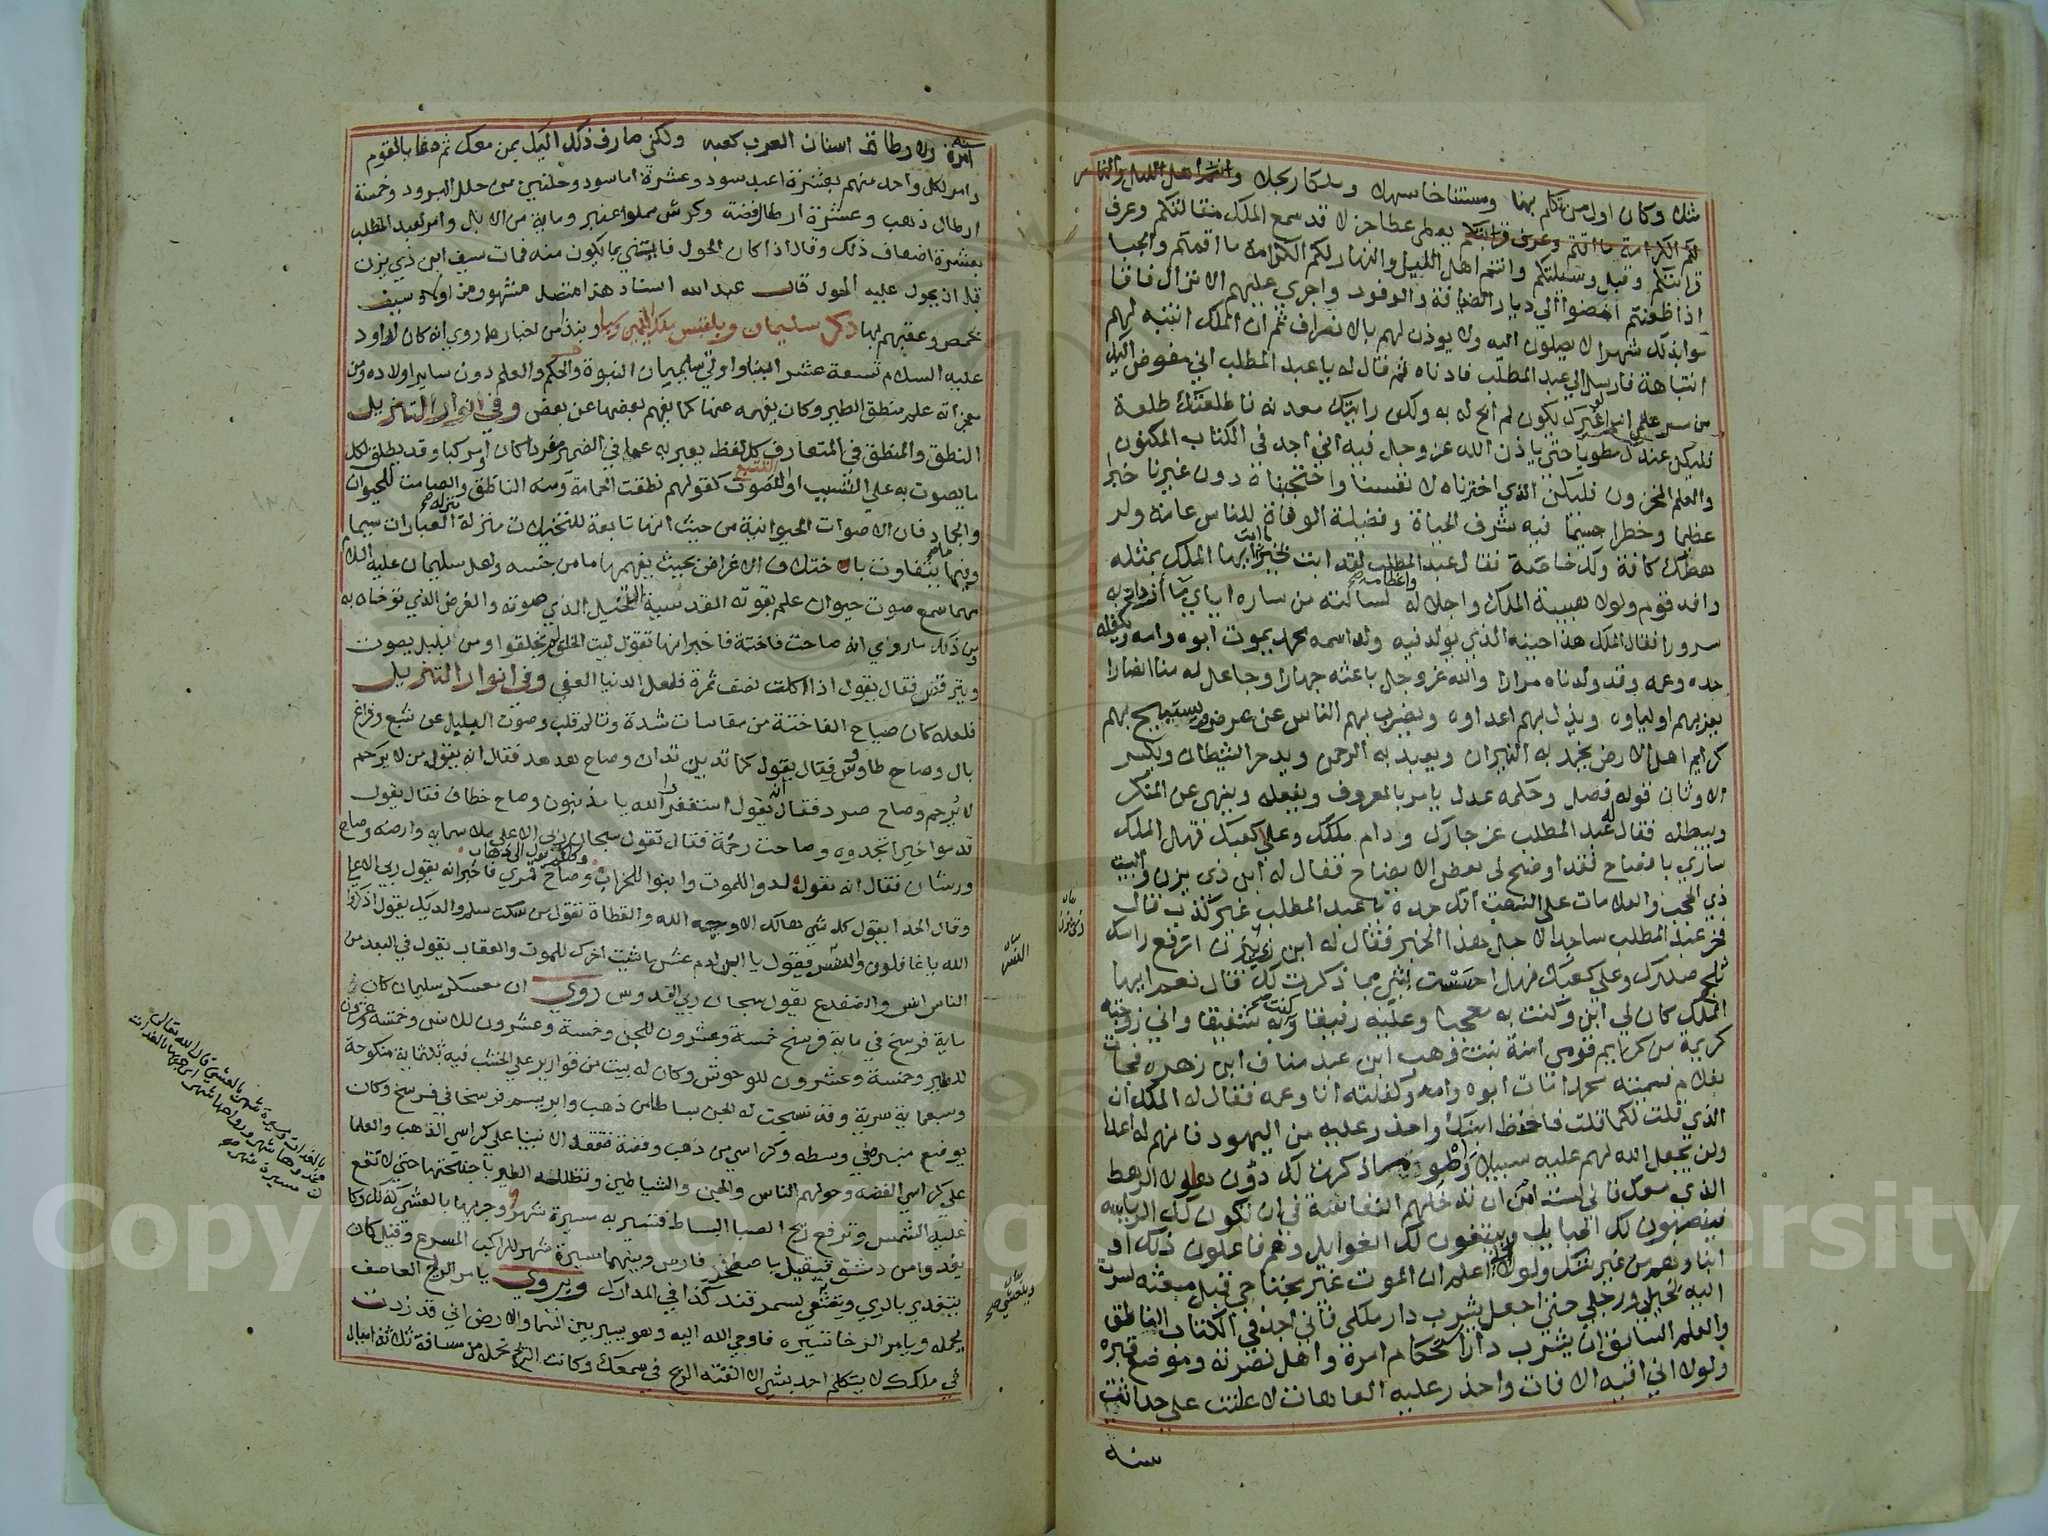 مثلك وكان اول من تكلم بهنا ومستناخا سهلا وملكا ربحلا وانتم اهل الليل والنهار
لكم الكرامة ما اقمتم وعرف قرابتكم يعطي عطا جزلا قد سمع الملك مقالتكم وعرف
قرابتكم وقبل وسيلتكم وانتم اهل الليل والنهار لكم الكرامة ما اقمتم والحبا
اذا ظعنتم انهضوا الي ديار الضيافة والوفود واجري عليهم الانزال فاقا
موا بذلك شهرا لا يصلون اليه ولا يوذن لهم بالانصراف ثم ان الملك انتبه لهم
انتباهة فارسل الي عبد المطلب فادناه ثم قال له يا عبد المطلب اني مفوض اليك
من سر علمي لو غيرك يكون لم ابح له به ولكن رايتك معدنه فاطلعتك طلعة
فليكن عندك مطويا حتي ياذن الله عز وجل فيه اني اجد في الكتاب المكنون
والعلم المخزون الذي اخترناه لانفسنا واحتجناه دون غيرنا خبرا
عظيما وخطرا جسيما فيه شرف الحياة وفضيلة الوفاة للناس عامة ولر
هطك كافة ولك خاصة فقال عبد المطلب لقد ابت بخير ايها الملك بمثله
وافد قوم ولولا هيبة الملك واجلاله واعظامه لسالته من ساره اياي ما ازداد به
سرورا فقال الملك هذا حينه الذي يولد فيه ولد اسمه محمد يموت ابوه وامه ويكفله
جده وعمه وقد ولدناه مرارا والله عز وجل باعثه جهارا وجاعل له منا انصارا
يعز بهم اولياوه ويذل بهم اعداوه ويضرب بهم الناس عن عرض ويستبيح بهم
كرايم اهل الارض يخمد به النيران ويعبد به الرحمن ويدحر الشيطان ويكسر
الاوثان قوله فصل وحكمه عدل يامر بالمعروف ويفعله وينهي عن المنكر
ويبطله فقال له عبد المطلب عز جارك ودام ملكك وعلا كعبك فهل الملك
ساري بافصاح فقد اوضح لي بعض الايضاح فقال له ابن ذي يزن والبيت
ذي الحجب والعلامات علي النصب انك جده يا عبد المطلب غير كذب قال
فخر عبد المطلب ساجدا لاجل هذا الخبر فقال له ابن ذي يزن ارفع راسك
ثلج صدرك وعلي كعبك فهل احسست بشي مما ذكرت لك قال نعم ايها
الملك كان لي ابن وكنت به معجبا وعليه رفيقا وكنت به شفيقا واني زوجته
كريمة من كرايم قومي امنة بنت وهب ابن عبد مناف ابن زهره فجات
بغلام فسميته محمدا مات ابوه وامه وكفلته انا وعمه فقال له الملك ان
الذي قلت لك كما قلت فاحفظ ابنك واحذر عليه من اليهود فانهم له اعدا
ولن يجعل الله لهم عليه سبيلا واطو ما ذكرت لك دون هاولا الرهط
الذي معك فاني لست امن ان تدخلهم النفاسة في ان تكون لك الرياسه
فينصبون لك الحبايل ويبتغون لك الغوايل وهم فاعلون ذلك او
ابناوهم من غير شك ولولا اني اعلم ان الموت غير يجتاحي قبل مبعثه لسرت
اليه بخيلي ورجلي حتي اجعل يثرب دار ملكي فاني اجد في الكتاب الناطق
والعلم السابق ان يثرب دار استحكام امره واهل نصرته وموضع قبره
ولولا اني اقيه الافات واحذر عليه العاهات لاعلنت علي حداثت
سنه
بيان
ذي يزن
سنه امره ولاوطات اسنان العرب كعبه ولكني صارف ذلك اليك بمن معك ثم دعا بالقوم
وامر لكل واحد منهم بعشرة اعبد سود وعشرة اما سود وحلتين من حلل البرود وخمسة
ارطال ذهب وعشرة ارطال فضة وكرش مملوا عنبر ومايه من الابل وامر لعبد المطلب
بعشرة اضعاف ذلك وقال اذا كان الحول فايتني بما يكون منه فمات سيف ابن ذي يزن
قبل ان يحول عليه الحول قال عبد الله استاد هذا متصل مشهور من اولاد سيف
بحمص وعقبهم بها ذكر سليمان وبلقيس ونبذا من اخبارها روي انه كان لداود
عليه السلام تسعة عشر ابنا واوتي سليمان النبوة والحكم والعلم دون ساير اولاده ومن
معجزاته علم منطق الطير وكان يفهمه عنها كما يفهم بعضها عن بعض وفي انوار التنزيل
النطق والمنطق في المتعارف كل لفظ يعبر به عما في الضمير مفردا كان او مركبا وقد يطلق لكل
ما يصوت به علي التشبيه او التبع كقولهم نطقت الحمامة ومنه الناطق والصامت للحيوان
والجماد فان الاصوات الحيوانية من حيث انها تابعة للتخيلات منزلة العبارات سيما
وفيها ما يتفاوت باختلاف الاغراض بحيث يفهمها ما من جنسه ولعل سليمان عليه السلام
مهما سمع صوت حيوان علم بقوته القدسية التخيل الذي صوته والغرض الذي توخاه به
ومن ذلك ما روي انه صاحت فاختة فاخبر انها تقول ليت الخلق لم يخلقوا ومر ببلبل يصوت
ويترقص فقال يقول اذا اكلت نصف ثمرة فعلي الدنيا العفي وفي انوار التنزيل
فلعله كان صياح الفاختة من مقاسات شدة وتالم قلب وصوت البلبل عن شبع وفراغ
بال وصاح طاوس فقال يقول كما تدين تدان وصاح هدهد فقال انه يقول من لا يرحم
لا يرحم وصاح صرد فقال انه يقول استغفروا الله يا مذنبون وصاح خطاف فقال يقول
قدموا خيرا تجدوه وصاحت رخمة فقال تقول سبحان ربي الاعلي ملا سمايه وارضه وصاح
ورشان فقال انه يقول لدوا للموت وابنوا للخراب وصاح قمري فاخبر انه يقول ربي الاعلا
وقال الحدا يقول كل شي هالك الا وجهه الله والقطاة تقول من سكت سلم والديك يقول اذكروا
الله يا غافلون والنسر فيقول يا ابن ادم عش ما شيت اخرك للموت والعقاب يقول في البعد من
الناس انس والضفدع يقول سبحان ربي القدوس روي ان معسكر سليمان كان
ماية فرسخ في ماية فرسخ خمسة وعشرون للجن وخمسة وعشرون للانس وخمسه وعشرون
للطير وخمسة وعشرون للوحوش وكان له بيت من قوارير علي الخشب فيه ثلثماية منكوحة
وسبعماية سرية وقد نسجت له الجن بساطا من ذهب وابريسم فرسخا في فرسخ وكان
يوضع منبره في وسطه وكراسي من ذهب وفضة فتقعد الانبيا علي كراسي الذهب والعلما
علي كراسي الفضه وحولهم الناس والجن والشياطين وتظلله الطير باجنحتها حتي لا تقع
عليه الشمس وترفع ريح الصبا البساط فتسير به مسيرة شهر وجريها بالعشي كذلك وكان
يغدوا من دمشق فيقيل باصطخر فارس وبينهما مسيرة شهر للراكب المسرع وقيل كان
يتغدي بالري ويتعشي بسمرقند كذا في المدارك ويروي يامر الريح العاصف
يحمله ويامر الرخا تسيره فاوحي الله اليه وهو يسير بين السما والارض اني قد زدت
في ملكك لا يتكلم احد بشي الا القته الريح في سمعك وكانت الريح تحمله من مسافة ثلاثة اميال
بيان
النسر